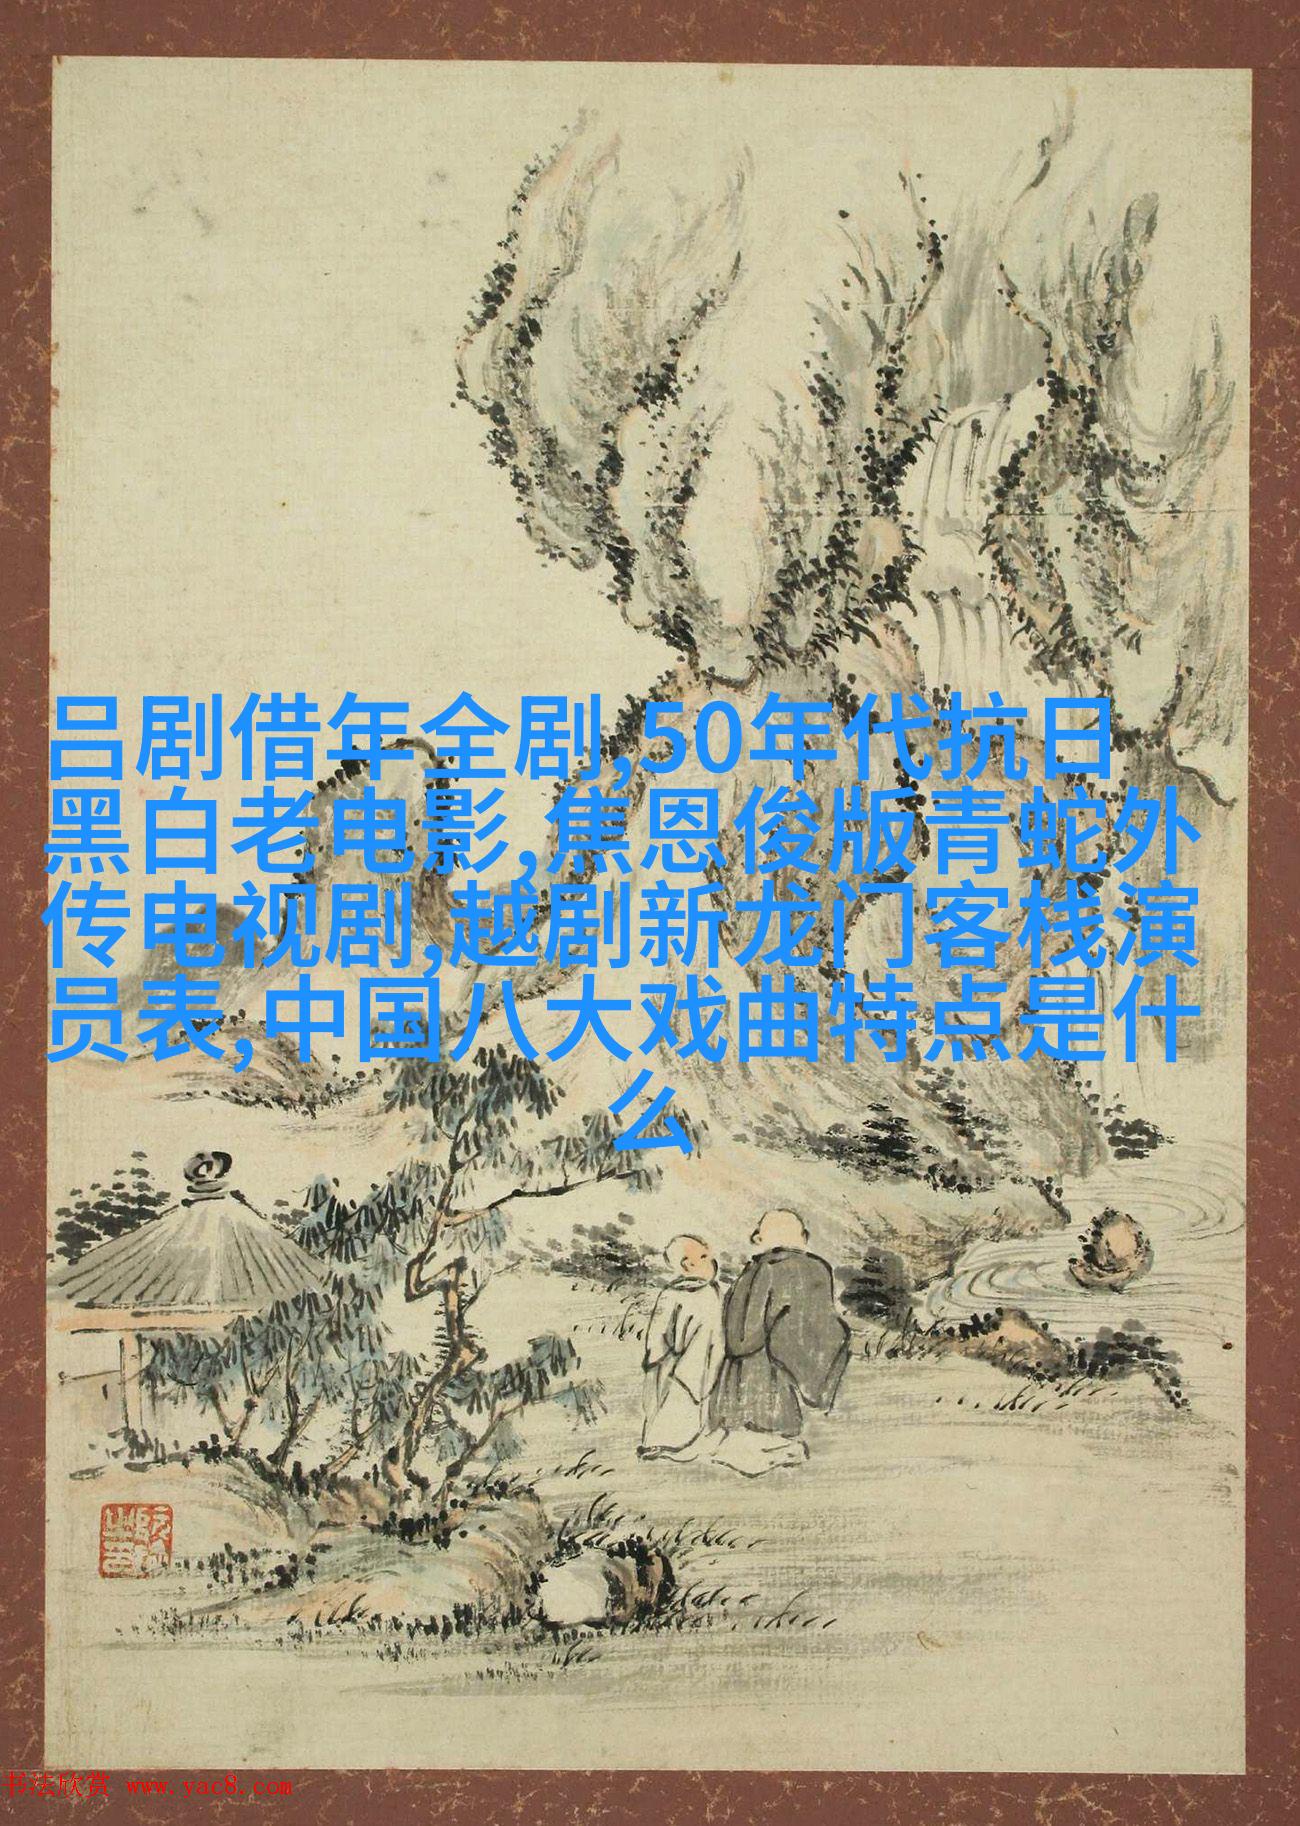 吕剧借年全剧,50年代抗日
黑白老电影,焦恩俊版青蛇外
传电视剧,越剧新龙门客栈演
员表,中国八大戏曲特点是什
么
书法欣赏 www.yac8.com